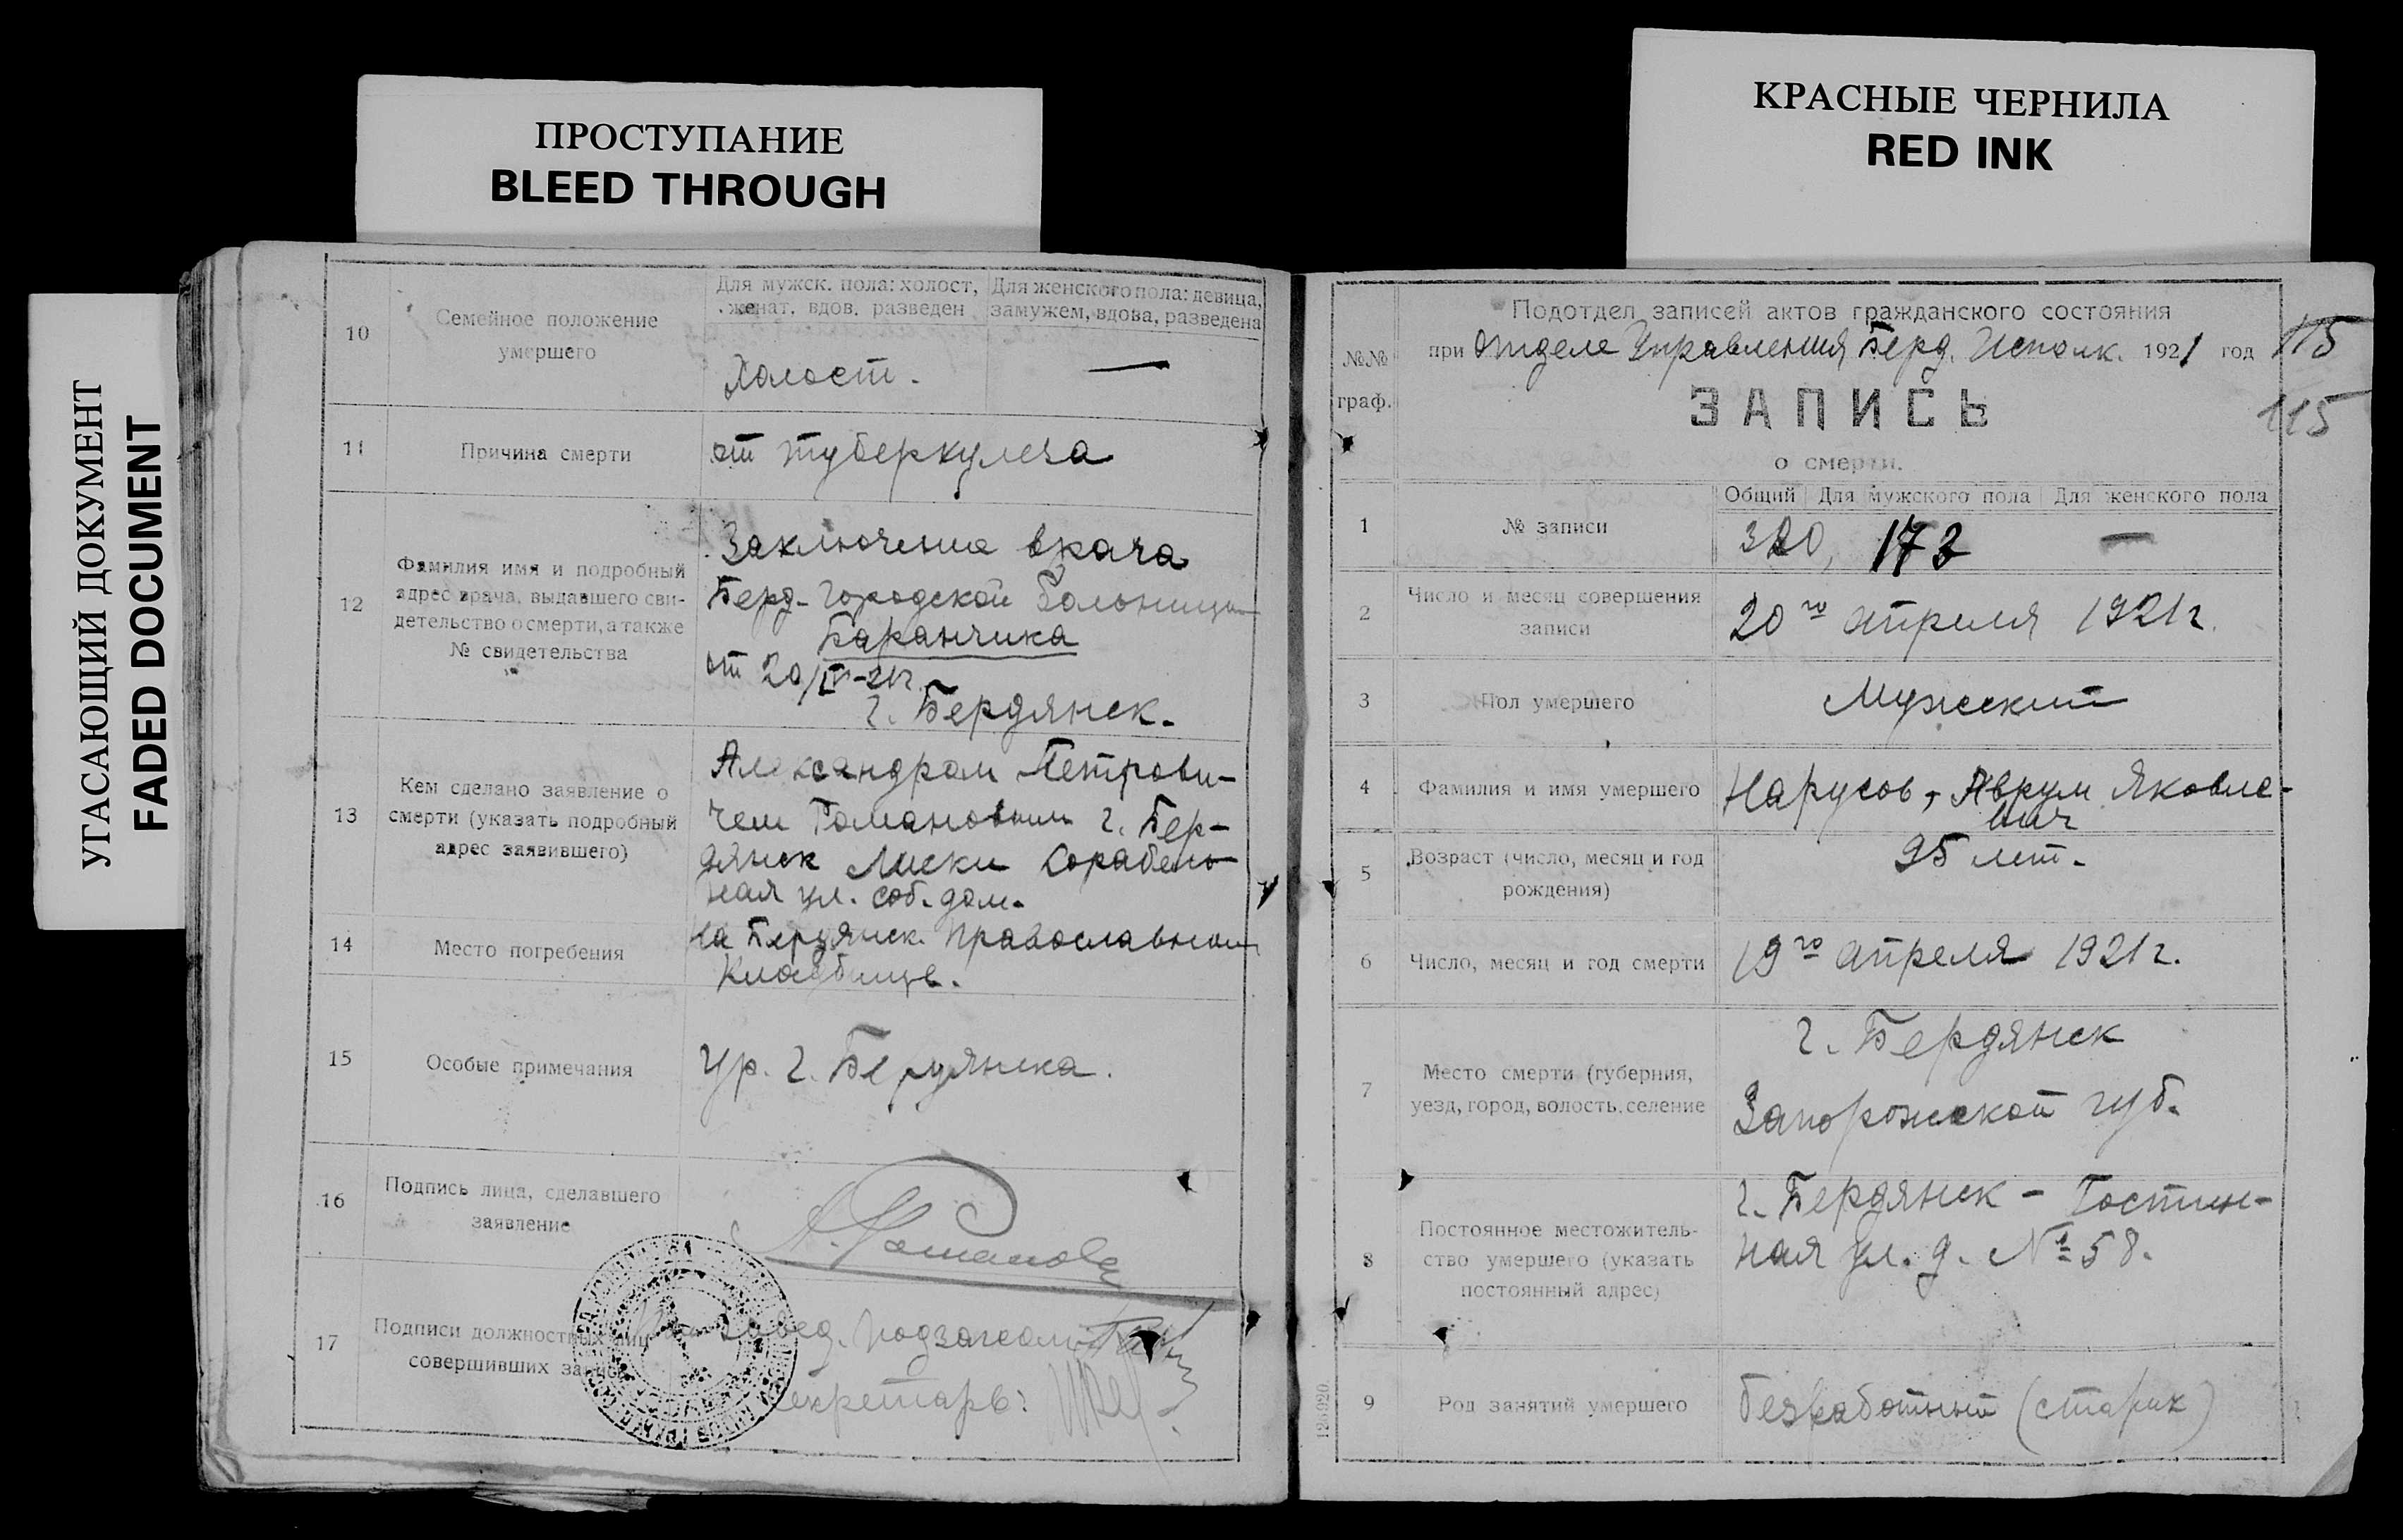 ПРОСТУПАНИЕ
BLEED THROUGH
КРАСНЫЕ ЧЕРНИЛА
RED INK
УГАСАЮЩИЙ ДОКУМЕНТ
FADED DOCUMENT
10
Семейное положение
умершего
Для мужск. пола: холост,
женат, вдов, разведен
Для женского пола: девица,
замужем, вдова, разведена
Холост. —
11 Причина смерти от туберкулеза
12
Фамилия имя и подробный
адрес врача, выдавшего сви-
детельство о смерти, а также
№ свидетельства
Заключение врача
Берд. Городской Больницы
Баранчика
от 20/IV-21г.
г. Бердянск.
13
Кем сделано заявление о
смерти (указать подробный
адрес заявившего)
Александром Петрови-
чем Романовым г. Бер-
дянск Лиски Корабель
ная ул. соб. дом.
14 Место погребения
на Бердянск. Православном
Кладбище.
15 Особые примечания Ур. г. Бердянска.
16
Подпись лица, сделавшего
заявление
А. Романов
17
Подписи должностных лиц
совершивших запись
Завед. подзагсом
Секретарь:
№№
граф.
Подотдел записей актов гражданского состояния
при Отделе Управления Берд. Исполк. 1921 год
115
ЗАПИСЬ
115
о смерти.
Общий Для мужского пола Для женского пола
1 № записи 320, 173 —
2
Число и месяц совершения
записи
20го Апреля 1921г.
3 Пол умершего Мужский
4 Фамилия и имя умершего Нарусов, Аврум Яковле-
вич
5
Возраст (число, месяц и год
рождения)
95 лет.
6 Число, месяц и год смерти 19го Апреля 1921г.
7
Место смерти (губерния,
уезд, город, волость, селение
г. Бердянск
Запорожской губ.
8
Постоянное местожитель-
ство умершего (указать
постоянный адрес)
г. Бердянск - Гостин-
ная ул. д. № 58.
9 Род занятий умершего Безработный (старик)